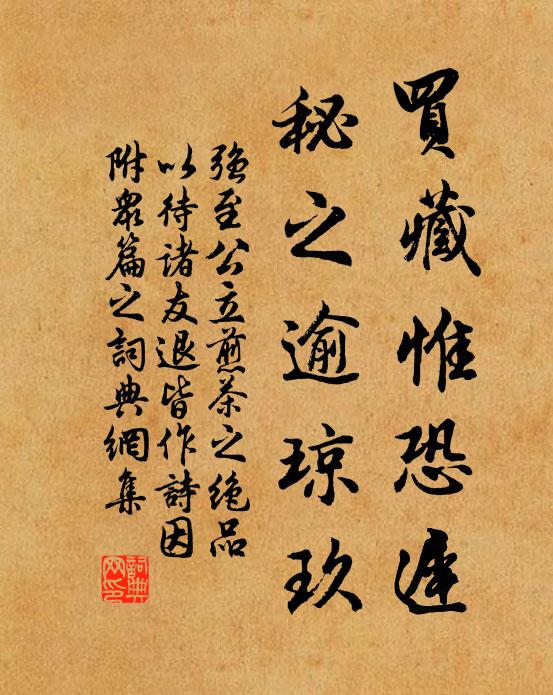 買藏惟恐遲
秘之逾琼玖
強至公立煎茶之絶品
以待諸友退皆作詩因
附眾篇之詞典網集
詞典
网印